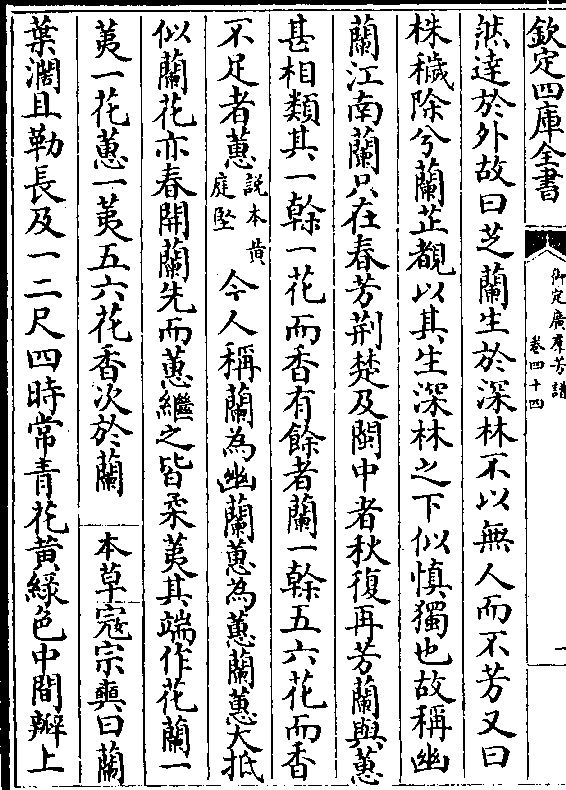 欽定四庫全書
御定廣羣芳譜
卷四十四
一
然達於外故曰芝蘭生於深林不以無人而不芳又曰
株穢除兮蘭芷覩以其生深林之下似慎獨也故稱幽
蘭江南蘭只在春芳荆楚及閩中者秋復再芳蘭與蕙
甚相類其一榦一花而香有餘者蘭一榦五六花而香
不足者蕙説本黄庭堅今人稱蘭為幽蘭蕙為蕙蘭蕙大抵
似蘭花亦春開蘭先而蕙繼之皆柔荑其端作花蘭一
荑一花蕙一荑五六花香次於蘭 本草寇宗奭曰蘭
葉濶且勒長及一二尺四時常青花黄緑色中間瓣上